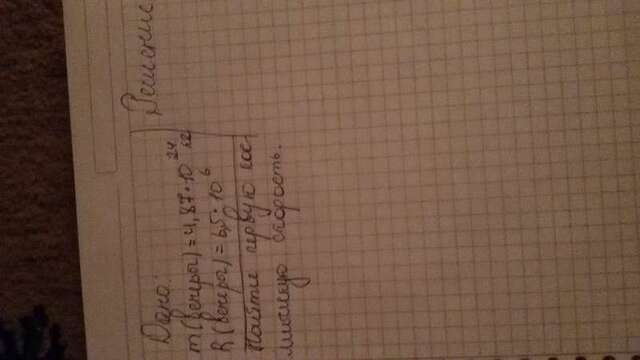 Дано:
m(венера) = 4,87·10²⁴ кг
R(венера) = 6,5·10⁶
Найти первую кос
мическую скорость.
Решение